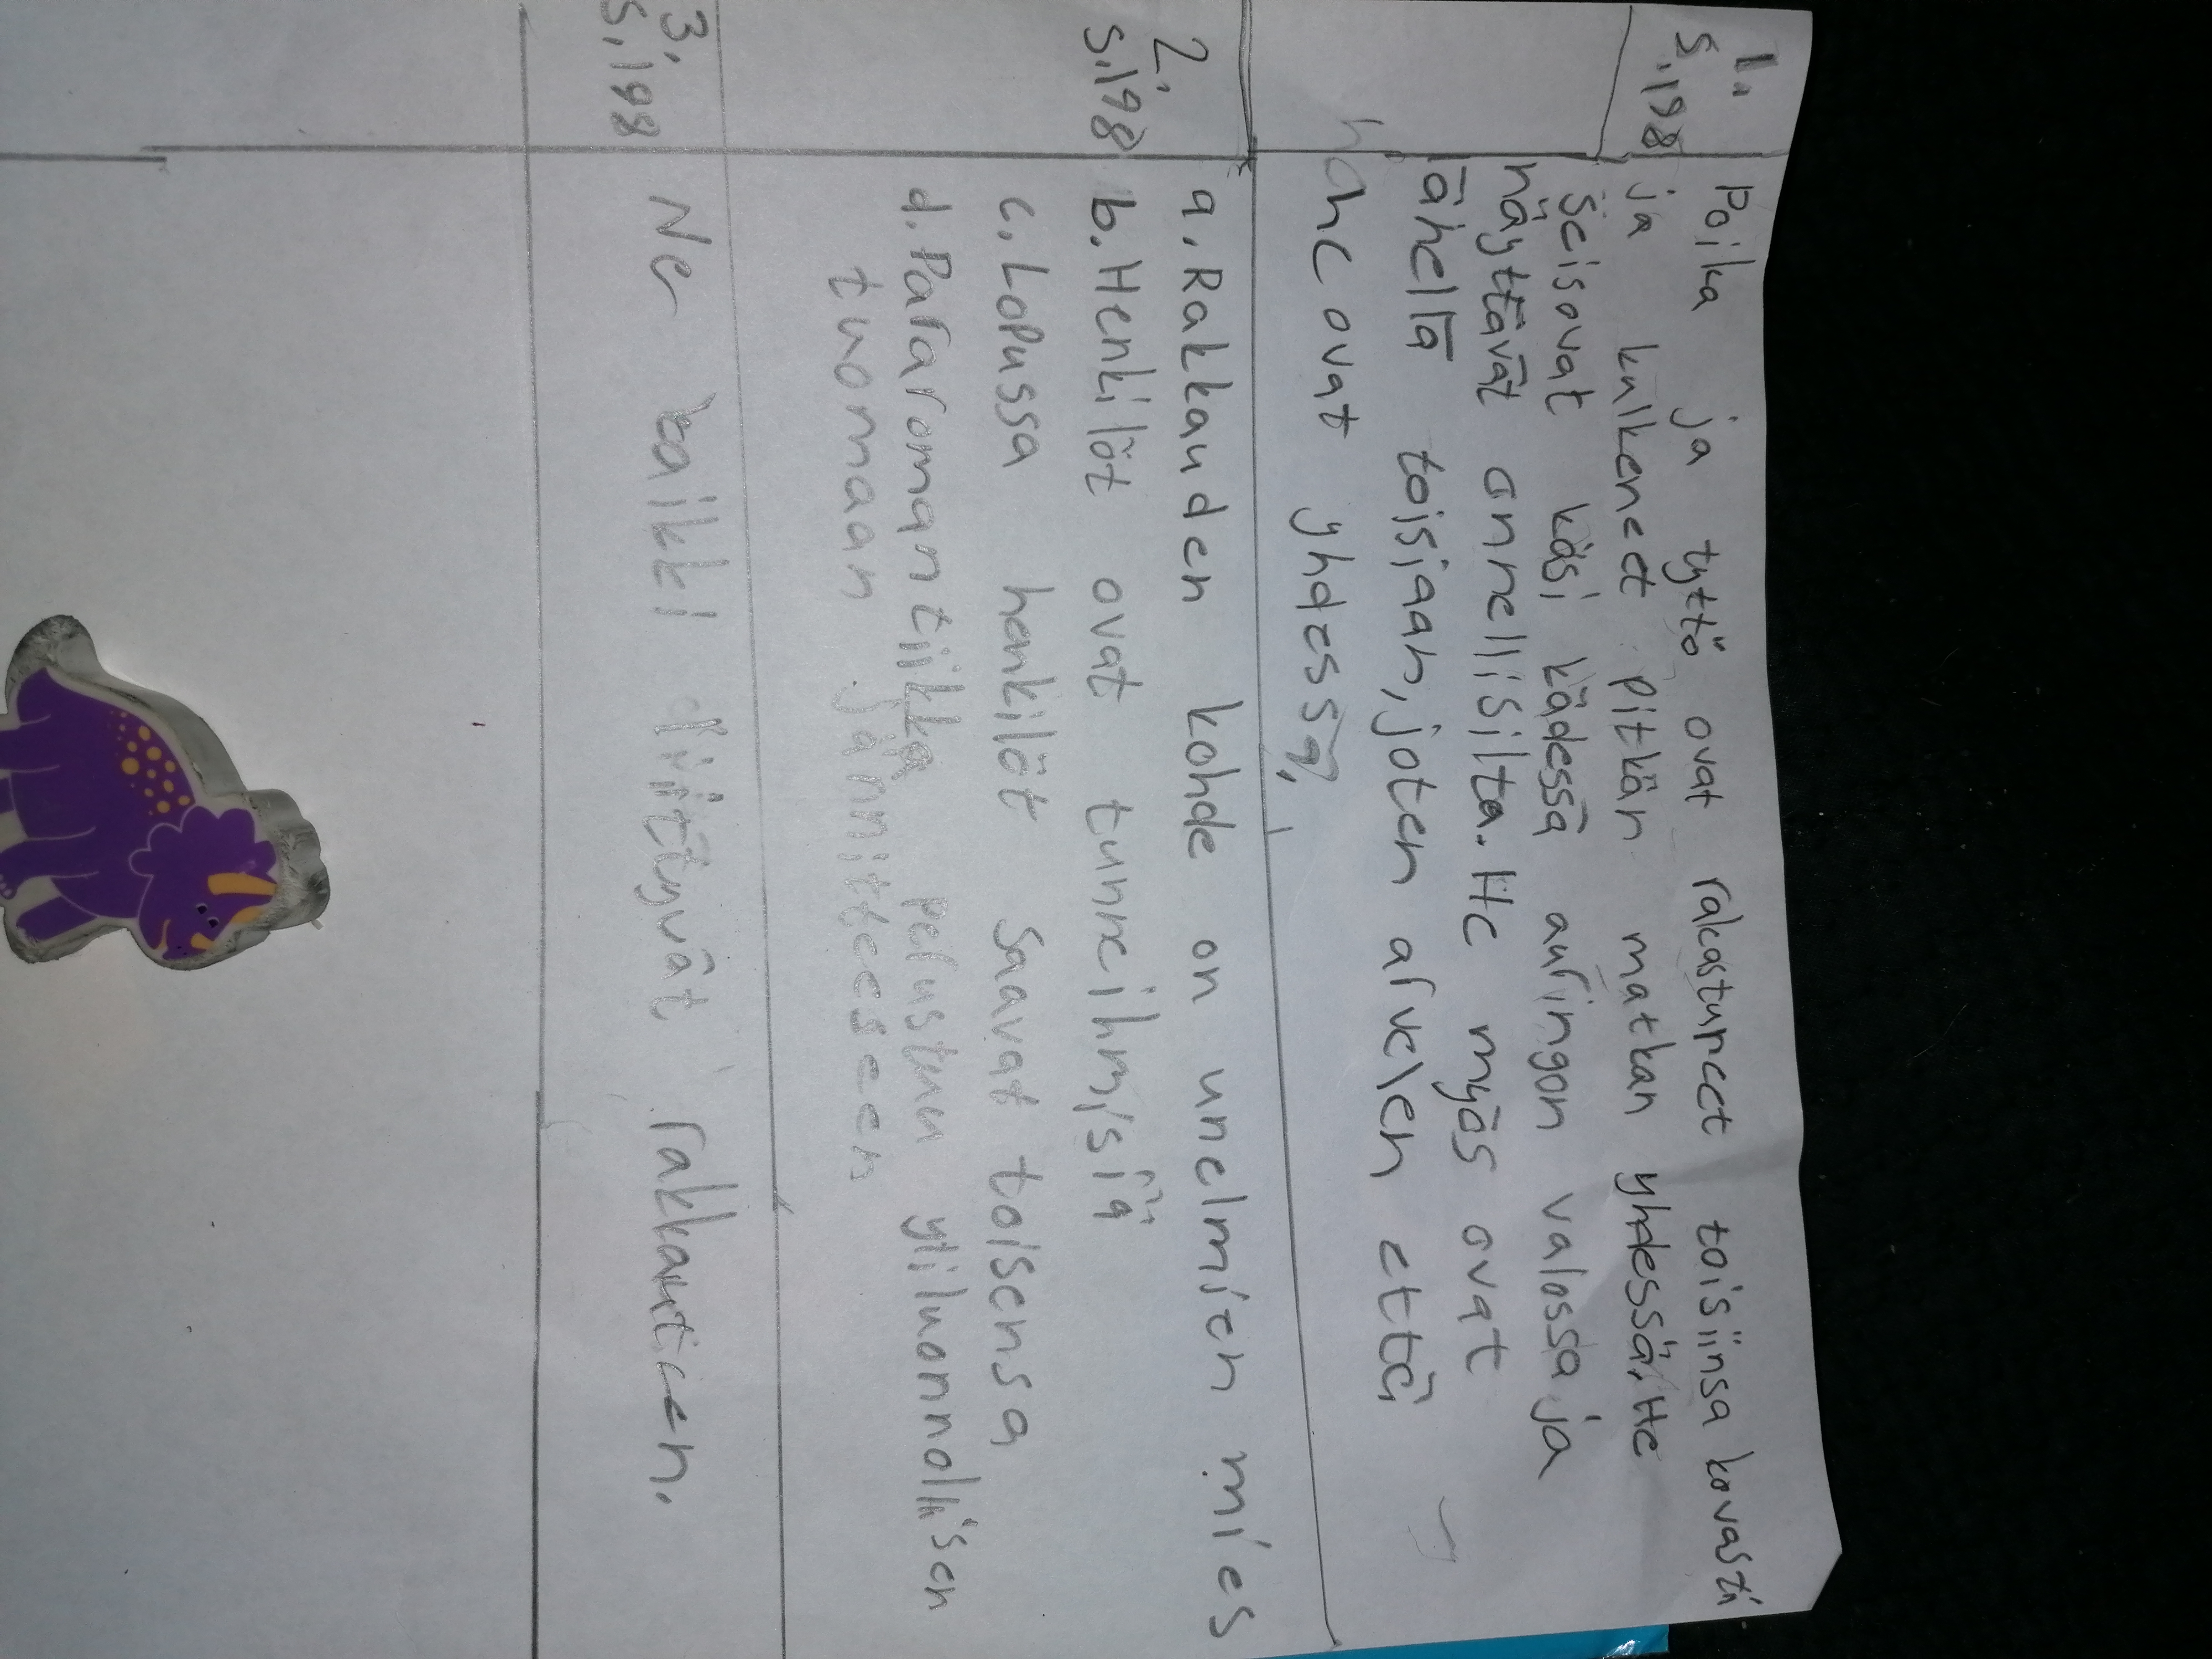 1.
s.198
Poika ja tyttö ovat rakastuneet toisiinsa kovasti
ja kulkeneet pitkän matkan yhdessä. He
seisovat käsi kädessä auringon valossa ja
näyttävät onnellisilta. He myös ovat
lähellä toisiaan, joten arvelen että
he ovat yhdessä,
2.
s.198
a. Rakkauden kohde on unelmien mies
b. Henkilöt ovat tunneihmisiä
c. Lopussa henkilöt saavat toisensa
d. Pararomantiikka perustuu yliluonnollisen
tuomaan jännitteeseen
3.
s.198
Ne kaikki liittyvät rakkauteen.